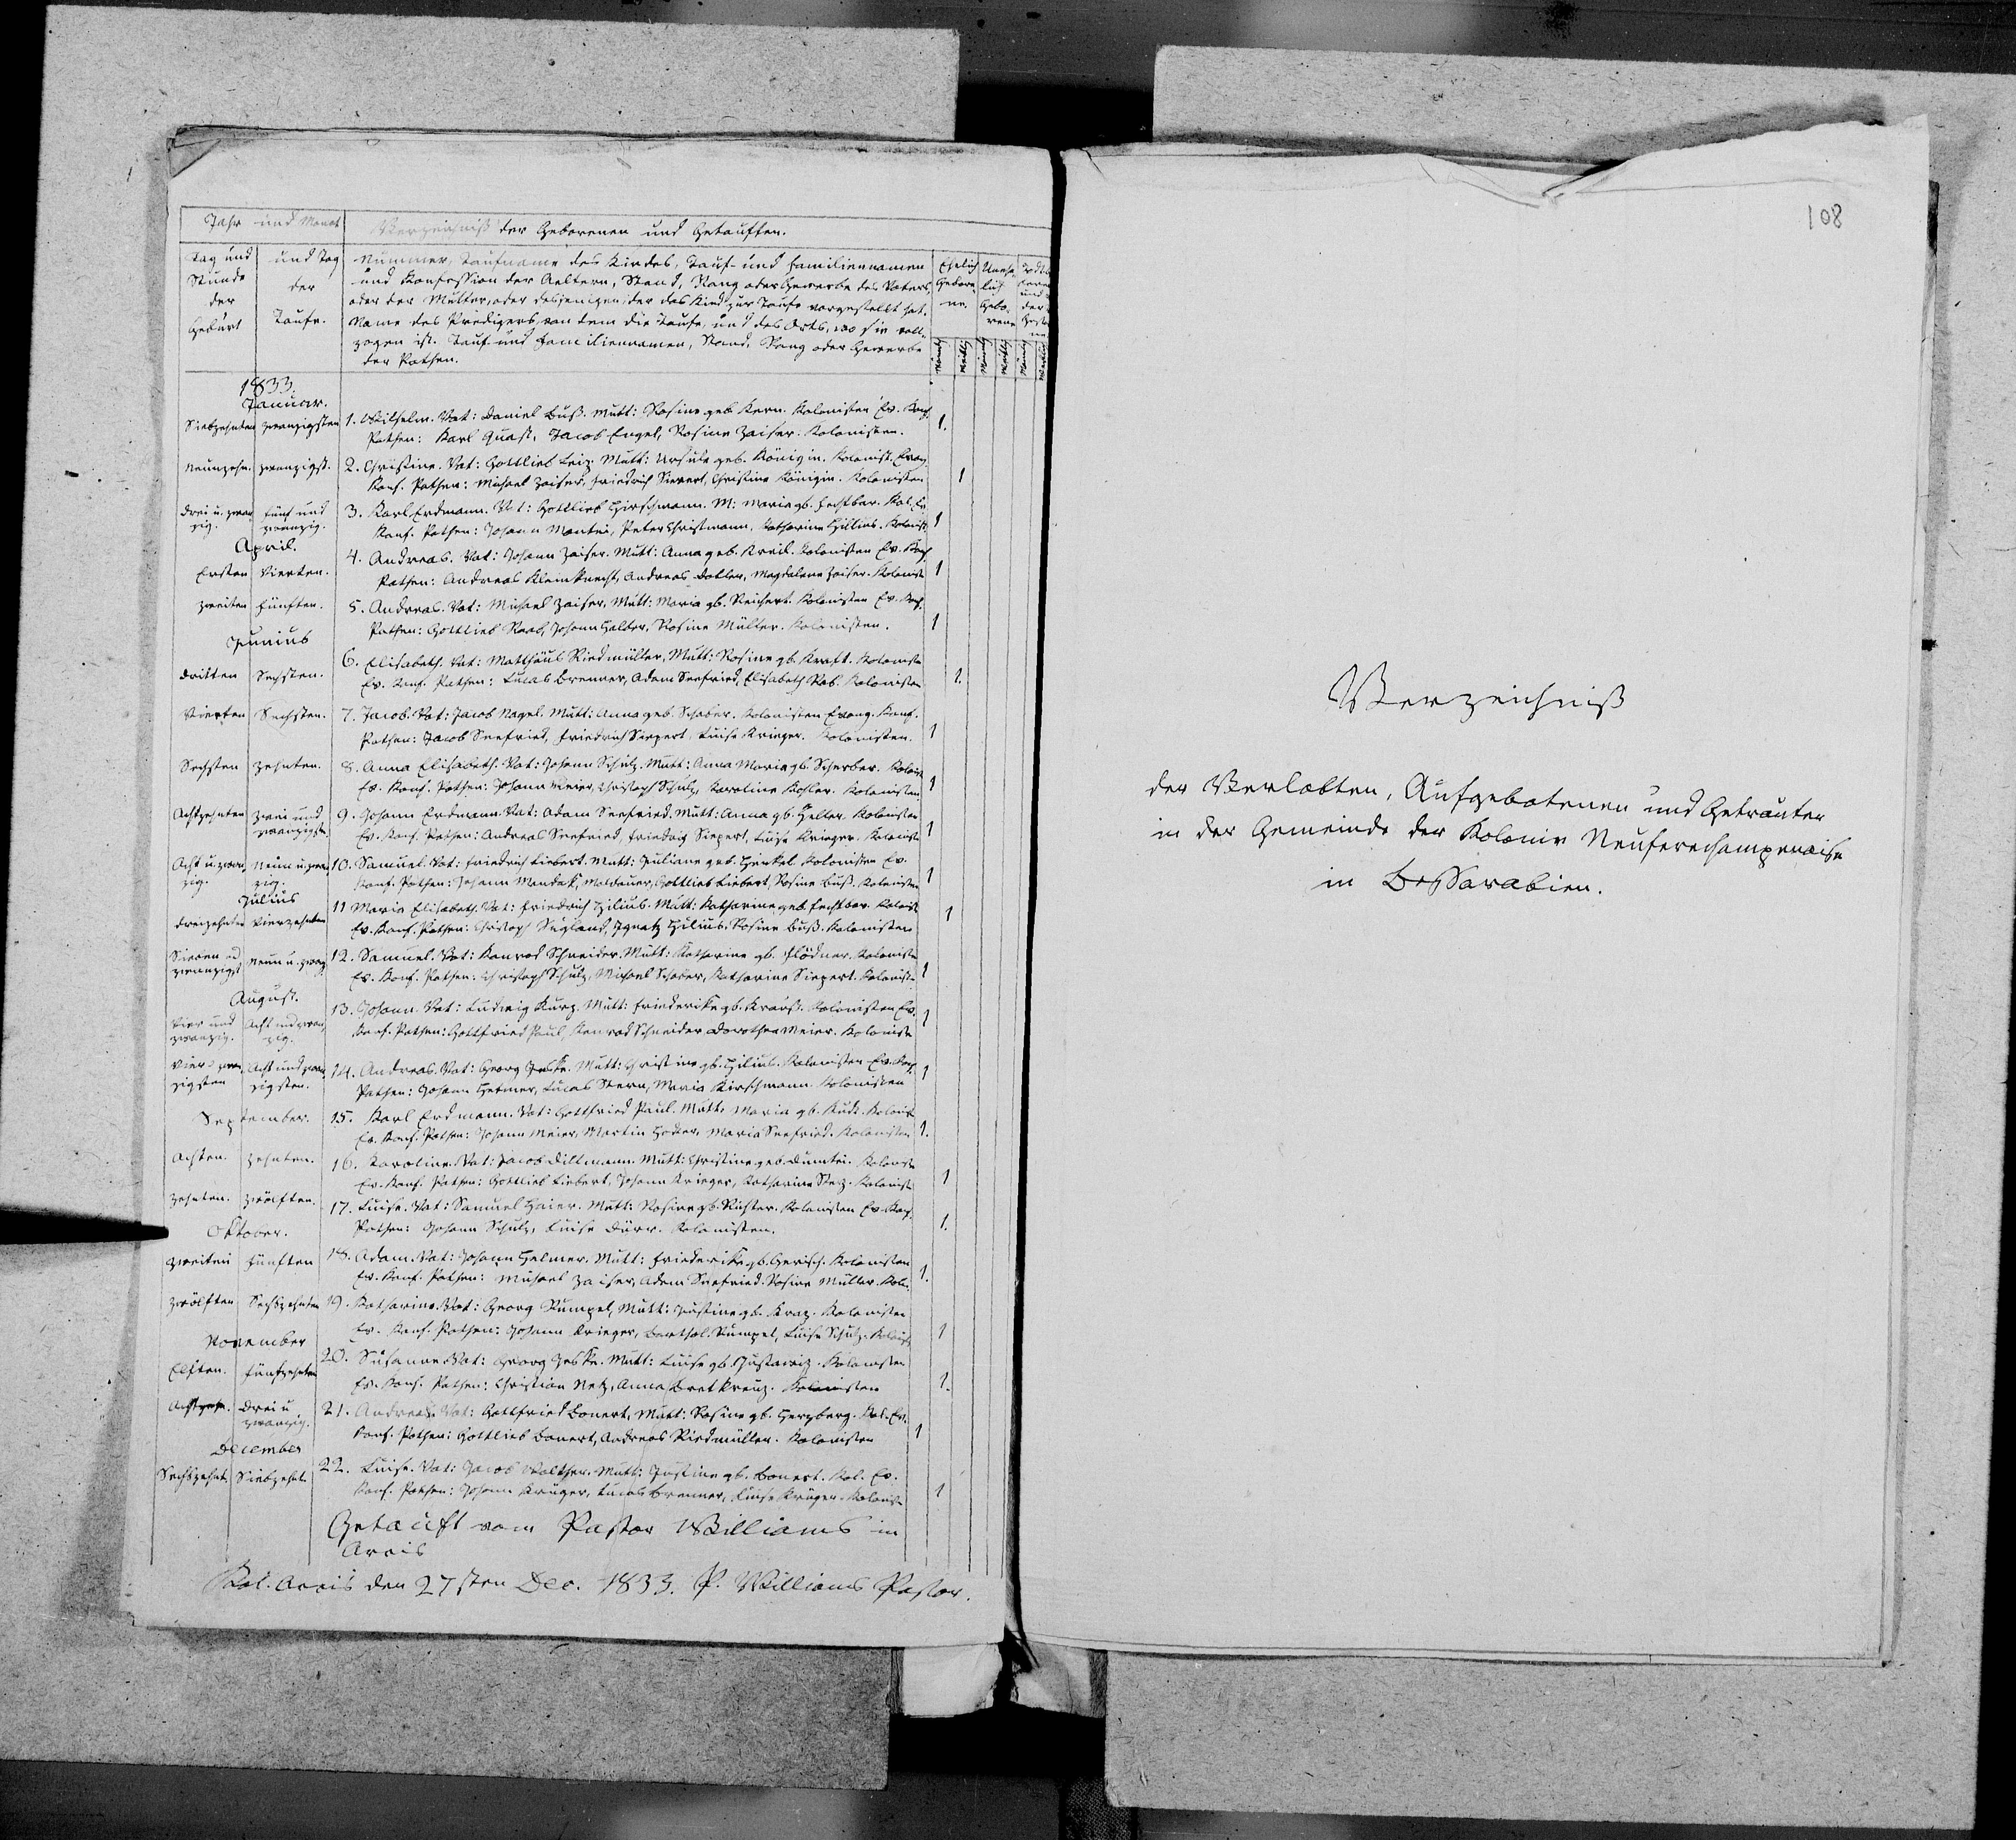 Jahr und Monat
Verzeichniß der Geborenen und Getauften.
Tag und Stunde der Geburt
und Tag der Taufe.
Nummer, Taufname des Kindes, Tauf- und Familiennamen
und Konfession der Aeltern, Stand, Rang oder Gewerbe des Vaters,
oder der Mutter, oder desjenigen, der das Kind zur Taufe vorgestellt hat.
Name des Predigers, von dem die Taufe, und des Orts, wo sie voll-
zogen ist. Tauf- und Familiennamen, Stand, Rang oder Gewerbe
der Pathen.
Ehelich Gebore-ne.
Unehe-lich Gebo-rene
Männl. Weibl. Männl. Weibl. Männl. Weibl.
1833.
Januar.
Siebzehnten zwanzigsten 1. Wilhelm. Vat: Daniel Buß. Mutt: Rosine geb. Kern. Kolonisten Ev. Konf.
Pathen: Karl Quast, Jacob Engel, Rosine Zaiser. Kolonisten. 1.
Neunzehn. zwanzigst. 2. Christine. Vat: Gottlieb Leiz. Mutt: Ursula geb. Königin. Kolonist. Evang.
Konf. Pathen: Michael Zaiser, Friedrich Siepert, Christine Königin. Kolonisten 1
Drei u. zwan- fünf und 3. Karl Erdmann. Vat: Gottlieb Hirschmann. M: Maria gb. Fechtbar. Kol. Ev.
zig. zwanzig. Konf. Pathen: Johann Mantei, Peter Christmann, Katharina Hilius. Kolonist. 1
April.
Ersten Vierten. 4. Andreas. Vat: Johann Zaiser. Mutt: Anna geb. Kreil. Kolonisten Ev. Konf.
Pathen: Andreas Kleinknecht, Andreas Dobler, Magdalena Zaiser. Kolonist 1
Zweiten Fünften. 5. Andreas. Vat: Michael Zaiser, Mutt: Maria gb. Reichert. Kolonisten Ev. Konf.
Pathen: Gottlieb Raab, Johann Halder, Rosine Müller. Kolonisten. 1
Junius
Dritten Sechsten. 6. Elisabeth. Vat: Matthäus Riedmüller, Mutt: Rosine gb. Kraft. Koloniste
Ev. Konf. Pathen: Lucas Brenner, Adam Seefried, Elisabeth Rab. Kolonisten 1.
Vierten Sechsten. 7. Jacob. Vat: Jacob Nagel. Mutt: Anna geb. Schaber. Kolonisten Evang. Konf.
Pathen: Jacob Seefried, Friedrich Siepert, Luise Krieger. Kolonisten. 1
Sechsten zehnten. 8. Anna Elisabeth. Vat: Johann Schulz. Mutt: Anna Maria gb. Scherber. Kolonist
Ev. Konf. Pathen: Johann Meier, Christoph Schulz, Karoline Kohler. Kolonisten. 1
Achtzehnten zwei und 9. Johann Erdmann. Vat: Adam Seefried. Mutt: Anna gb. Heller. Kolonisten
zwanzigsten Ev. Konf. Pathen: Andreas Seefried, Friedrich Siepert, Luise Krieger. Koloniste 1
Acht u. zwan- Neun u. zwan- 10. Samuel. Vat: Friedrich Liebert. Mutt: Juliane geb. Henkel. Kolonisten Ev.
zig. zig. Konf. Pathen: Johann Mandak, Moldauer, Gottlieb Liebert, Rosine Buß. Kolonisten 1
Julius
Dreizehnten Vierzehnten 11 Maria Elisabeth. Vat: Friedrich Hilius. Mutt: Katharina geb. Fechtbar. Kolonist
Ev. Konf. Pathen: Christoph Siegland, Ignatz Hilius, Rosine Buß. Kolonisten 1
Sieben und Neun u. zwanz. 12. Samuel. Vat: Konrad Schneider. Mutt: Katharina gb. Flödner. Koloniste
zwanzigst Ev. Konf. Pathen: Christoph Schulz, Michael Schaber, Katharina Siepert. Koloniste 1
August.
Vier und Acht und zwan- 13. Johann. Vat: Ludwig Kurz. Mutt: Friederike gb. Krauß. Kolonisten Ev.
zwanzig. zig. Konf. Pathen: Gottfried Paul, Konrad Schneider, Dorothea Meier. Koloniste 1
Vier u. zwan- Acht und zwan- 14. Andreas. Vat: Georg Jeske. Mutt: Christine gb. Hilius. Kolonisten Ev. Konf.
zigsten zigsten. Pathen: Johann Helmer, Lucas Stern, Maria Hirschmann. Kolonisten 1
September. 15. Karl Erdmann. Vat: Gottfried Paul. Mutt: Maria gb. Kude. Kolonist
Ev. Konf. Pathen: Johann Meier, Martin Hoder, Maria Seefried. Kolonisten 1.
Achten. zehnten. 16. Karoline. Vat: Jacob Dillmann. Mutt: Christine geb. Dumtei. Koloniste
Ev. Konf. Pathen: Gottlieb Liebert, Johann Krieger, Katharina Starz. Kolonist 1
Zehnten. zwölften. 17. Luise. Vat: Samuel Haier. Mutt: Rosine gb. Richter. Kolonisten Ev. Konf.
Pathen: Johann Schulz, Luise Dürr. Kolonisten. 1.
Oktober.
Zweiten Fünften 18. Adam. Vat: Johann Helmer. Mutt: Friederike gb. Gerisch. Kolonisten
Ev. Konf. Pathen: Michael Zaiser, Adam Seefried, Rosine Müller. Kolon. 1.
Zwölften Sechszehnten 19. Katharina. Vat: Georg Rumpel, Mutt: Justine gb. Kraz. Kolonisten
Ev. Konf. Pathen: Johann Krieger, Barthol. Rumpel, Luise Schulz. Kolonist 1
November
Elften. fünfzehnten 20. Susanne. Vat: Georg Jeske. Mutt: Luise gb. Gustawiz. Kolonisten
Ev. Konf. Pathen: Christian Netz, Anna Bretkreuz. Kolonisten 1.
Achtzehn. Drei u 21. Andreas. Vat: Gottfried Bonert, Mutt: Rosine gb. Herzberg. Kol. Ev.
zwanzig. Konf. Pathen: Gottlieb Bonert, Andreas Riedmüller. Kolonisten 1
December
Sechszehnt. Siebzehnt. 22. Luise. Vat: Jacob Walther. Mutt: Justine gb. Bonert. Kol. Ev.
Konf. Pathen: Johann Krüger, Lucas Brenner, Luise Krüger. Koloniste 1
Getauft vom Pastor Williams in
Arcis
Kol. Arcis den 27sten Dec. 1833. P. Williams Pastor.
108
Verzeichniß
der Verlobten, Aufgebotenen und Getrauter
in der Gemeinde der Kolonie Neuferechampenoise
in Bessarabien.